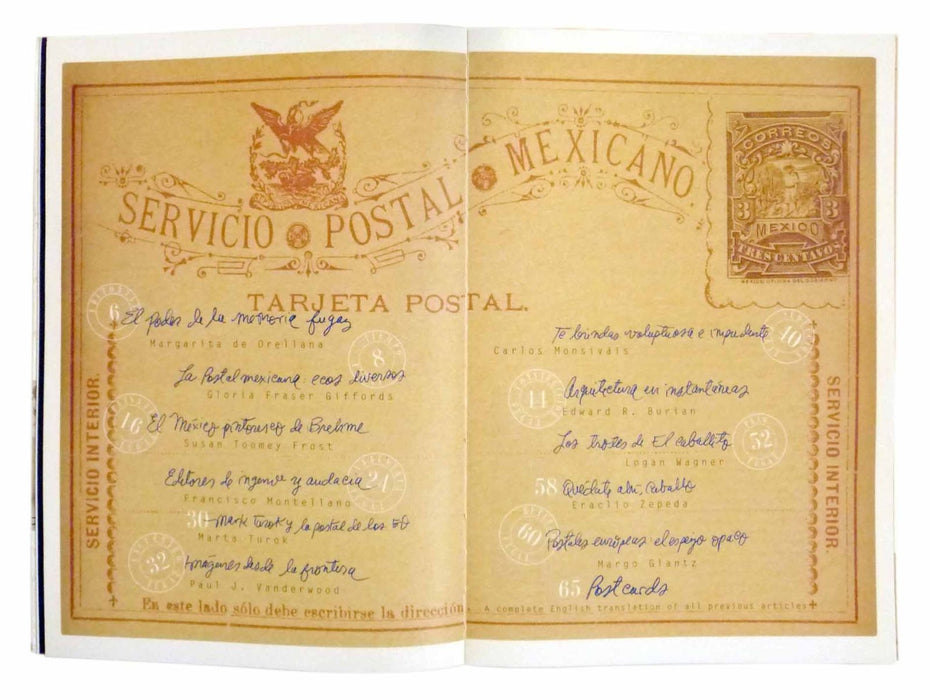 SERVICIO POSTAL MEXICANO.
CORREOS
3 3
MEXICO
TRES CENTAVOS
TARJETA POSTAL.
SERVICIO INTERIOR.
6
El poder de la memoria fugaz
Margarita de Orellana
8
La Postal mexicana: ecos diversos
Gloria Fraser Giffords
16
El México pintoresco de Brehme
Susan Toomey Frost
24
Editores de ingenio y audacia
Francisco Montellano
30
Mark Turok y la postal de los 60
Marta Turok
32
Imágenes desde la frontera
Paul J. Vanderwood
En este lado sólo debe escribirse la dirección.
40
Te brindas voluptuosa e impudente
Carlos Monsiváis
44
Arquitectura en instantáneas
Edward R. Burian
52
Los trotes de El caballito
Logan Wagner
58
Quédate ahí, caballo
Eraclio Zepeda
60
Postales europeas: el espejo opaco
Margo Glantz
65
Postcards
A complete English translation of all previous articles
SERVICIO INTERIOR